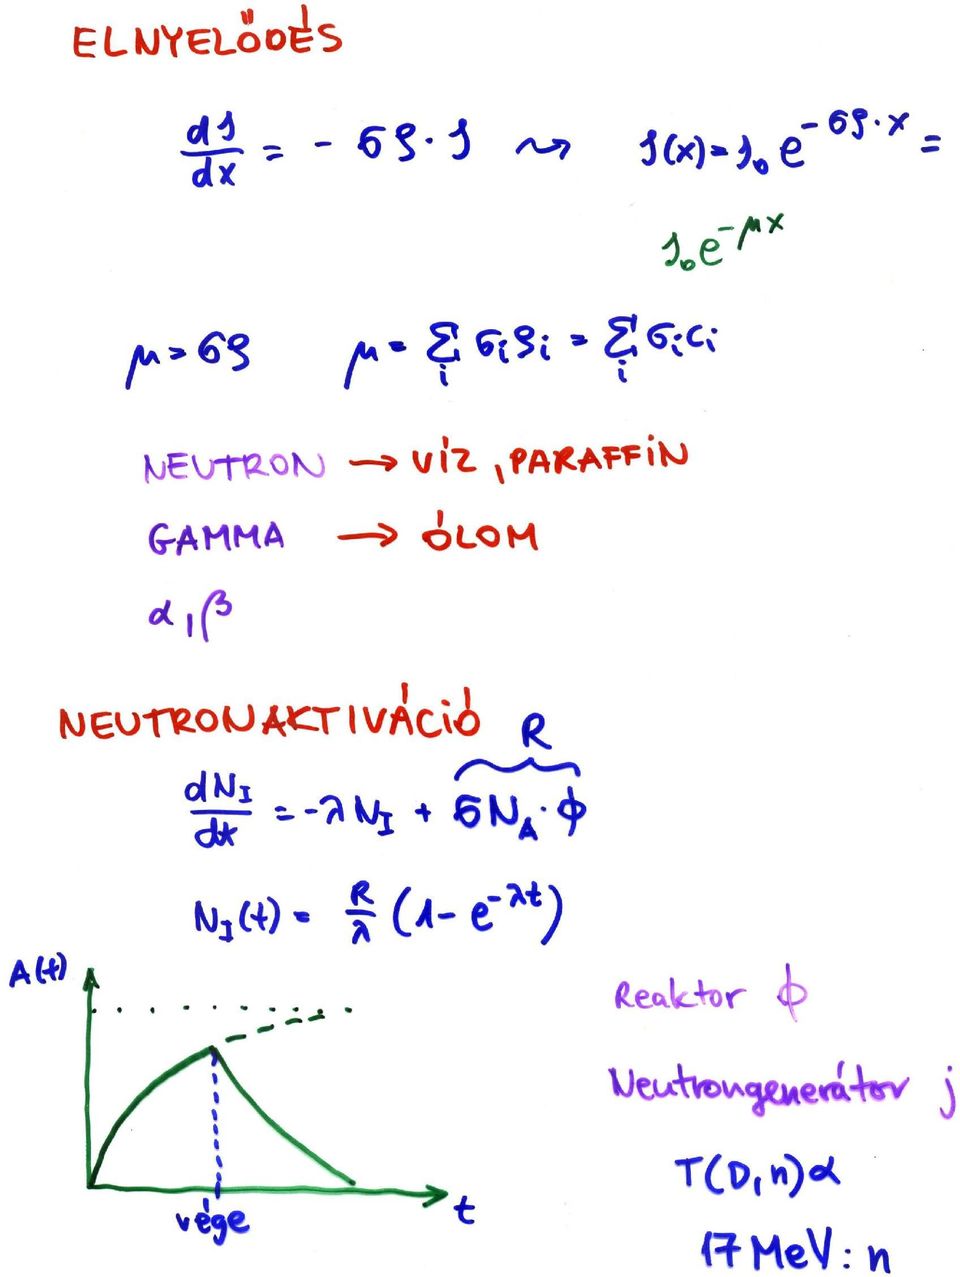 ELNYELŐDÉS
dJ/dx = - σρ·J ⤳ J(x)=J₀e^(-σρ·x) =
J₀e^(-μx)
μ=σρ μ = Σ_i σ_i ρ_i = Σ_i σ_i c_i
NEUTRON → VÍZ, PARAFFIN
GAMMA → ÓLOM
α, β
NEUTRONAKTIVÁCIÓ
R
dN_I/dt = -λN_I + σN_A·ϕ
N_I(t) = R/λ (1-e^(-λt))
A(t)
Reaktor ϕ
Neutrongenerátor j
T(D,n)α
t
vége
17 MeV: n